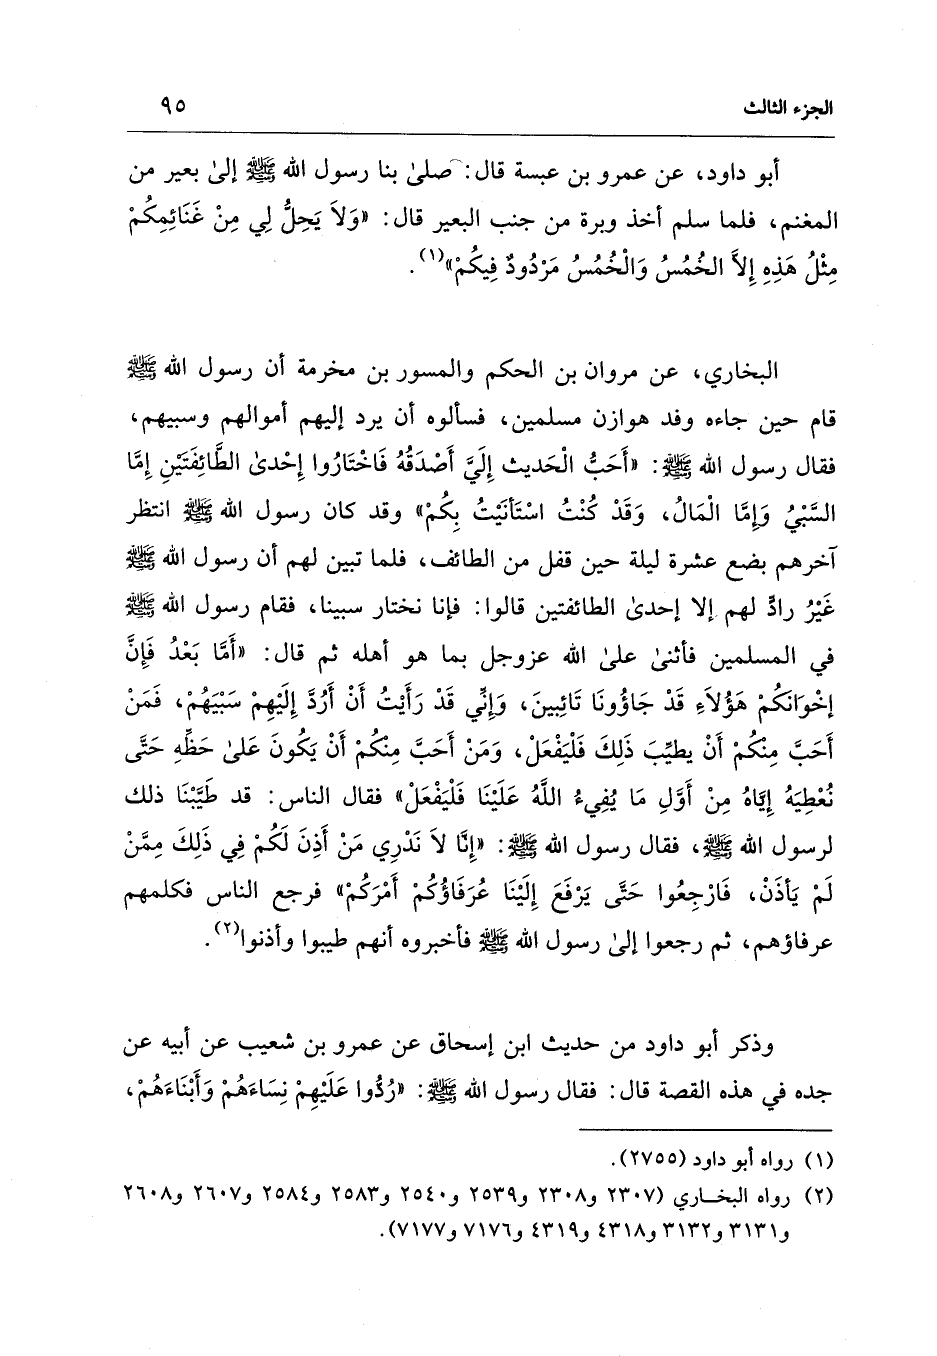 الجزء الثالث ٩٥
أبو داود، عن عمرو بن عبسة قال: صلىٰ بنا رسول الله ﷺ إلىٰ بعير من
المغنم، فلما سلم أخذ وبرة من جنب البعير قال: «وَلاَ يَحِلُّ لِي مِنْ غَنَائِمِكُمْ
مِثْلُ هَذِهِ إِلاَّ الخُمُسُ وَالْخُمُسُ مَرْدُودٌ فِيكُمْ»(١).
البخاري، عن مروان بن الحكم والمسور بن مخرمة أن رسول الله ﷺ
قام حين جاءه وفد هوازن مسلمين، فسألوه أن يرد إليهم أموالهم وسبيهم،
فقال رسول الله ﷺ: «أَحَبُّ الْحَديث إِلَيَّ أَصْدَقُهُ فَاخْتَارُوا إِحْدىٰ الطَّائِفَتَيْنِ إِمَّا
السَّبْيُ وَإِمَّا الْمَالُ، وَقَدْ كُنْتُ اسْتَأنَيْتُ بِكُمْ» وقد كان رسول الله ﷺ انتظر
آخرهم بضع عشرة ليلة حين قفل من الطائف، فلما تبين لهم أن رسول الله ﷺ
غَيْرُ رادٍّ لهم إلا إحدىٰ الطائفتين قالوا: فإنا نختار سبينا، فقام رسول الله ﷺ
في المسلمين فأثنىٰ علىٰ الله عزوجل بما هو أهله ثم قال: «أَمَّا بَعْدُ فَإِنَّ
إِخْوَانَكُمْ هَؤُلاَءِ قَدْ جَاؤُونَا تَائِبينَ، وَإِنِّي قَدْ رَأَيْتُ أَنْ أَرُدَّ إِلَيْهِمْ سَبْيَهُمْ، فَمَنْ
أَحَبَّ مِنْكُمْ أَنْ يطيِّبَ ذَلِكَ فَلْيَفْعَلْ، وَمَنْ أَحَبَّ مِنْكُمْ أَنْ يَكُونَ عَلىٰ حَظِّهِ حَتَّى
نُعْطِيَهُ إِيَّاهُ مِنْ أَوَّلِ مَا يُفِيءُ اللَّهُ عَلَيْنَا فَلْيَفْعَلْ» فقال الناس: قد طَيَّبْنَا ذلك
لرسول الله ﷺ، فقال رسول الله ﷺ: «إِنَّا لاَ نَدْرِي مَنْ أَذِنَ لَكُمْ فِي ذَلِكَ مِمَّنْ
لَمْ يَأذَنْ، فَارْجِعُوا حَتَّى يَرْفَعَ إِلَيْنَا عُرَفَاؤُكُمْ أَمْرَكُمْ» فرجع الناس فكلمهم
عرفاؤهم، ثم رجعوا إلىٰ رسول الله ﷺ فأخبروه أنهم طيبوا وأذنوا(٢).
وذكر أبو داود من حديث ابن إسحاق عن عمرو بن شعيب عن أبيه عن
جده في هذه القصة قال: فقال رسول الله ﷺ: «رُدُّوا عَلَيْهِمْ نِسَاءَهُمْ وَأَبْنَاءَهُمْ،
(١) رواه أبو داود (٢٧٥٥).
(٢) رواه البخـاري (٢٣٠٧ و٢٣٠٨ و٢٥٣٩ و٢٥٤٠ و٢٥٨٣ و٢٥٨٤ و٢٦٠٧ و٢٦٠٨
و٣١٣١ و٣١٣٢ و٤٣١٨ و٤٣١٩ و٧١٧٦ و٧١٧٧).